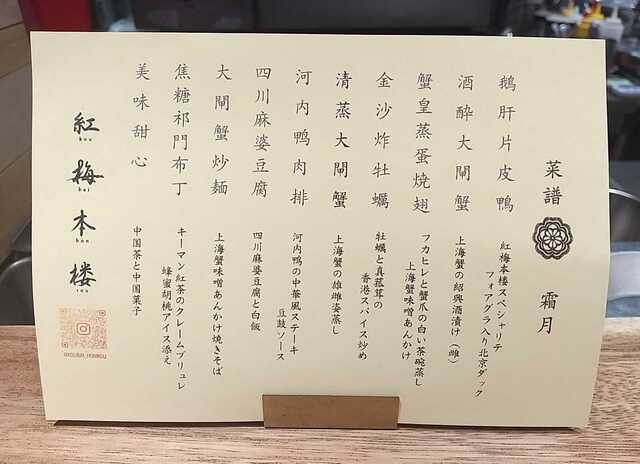 菜譜
霜月
鵝肝片皮鴨
紅梅本楼スペシャリテ
フォアグラ入り北京ダック
酒酔大閘蟹
上海蟹の紹興酒漬け（雌）
蟹皇蒸蛋焼翅
フカヒレと蟹爪の白い茶碗蒸し
上海蟹味噌あんかけ
金沙炸牡蠣
牡蠣と真菰茸の
香港スパイス炒め
清蒸大閘蟹
上海蟹の雄雌姿蒸し
河内鴨肉排
河内鴨の中華風ステーキ
豆鼓ソース
四川麻婆豆腐
四川麻婆豆腐と白飯
大閘蟹炒麺
上海蟹味噌あんかけ焼きそば
焦糖祁門布丁
キーマン紅茶のクレームブリュレ
蜂蜜胡桃アイス添え
美味甜心
中国茶と中国菓子
紅梅本楼
kou
bai
hon
rou
@KOUBAI_HONROU